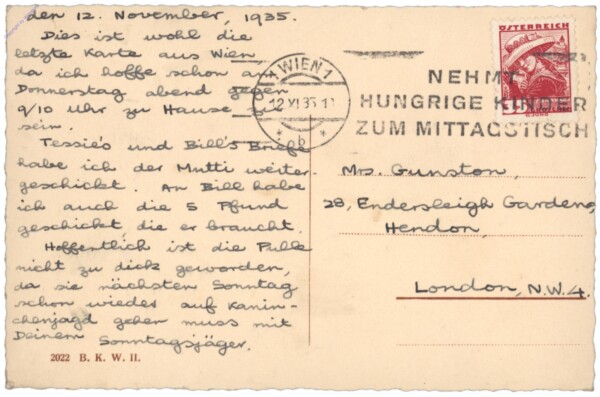 den 12. November, 1935.
Dies ist wohl die
letzte Karte aus Wien
da ich hoffe schon am
Donnerstag abend gegen
9/10 Uhr zu Hause zu
sein.
Tessie's und Bill's Briefe
habe ich der Mutti weiter-
geschickt. An Bill habe
ich auch die 5 Pfund
geschickt, die er braucht.
Hoffentlich ist die Pulle
nicht zu dick geworden,
da sie nächsten Sonntag
schon wieder auf Kanin-
chenjagd gehen muss mit
Deinem Sonntagsjäger.
2022 B. K. W. II.
WIEN 1
12 XI 35
b
NEHMT
HUNGRIGE KINDER
ZUM MITTAGSTISCH
ÖSTERREICH
Mrs. Gunston,
28, Endersleigh Gardens,
Hendon,
London, N.W.4.